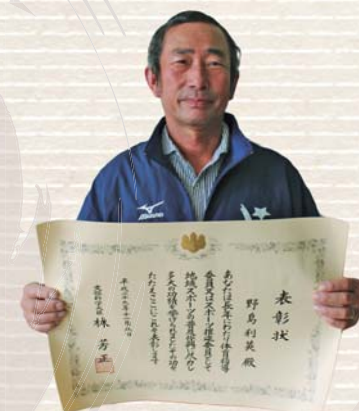 表彰状
野島利英 殿
あなたは長年にわたり体育指導
委員又はスポーツ推進委員として
地域スポーツの普及振興に尽力し
多大の功績を挙げられましたその功を
たたえここにこれを表彰します
平成二十九年十一月
文部科学大臣 林 芳正
Mizuno